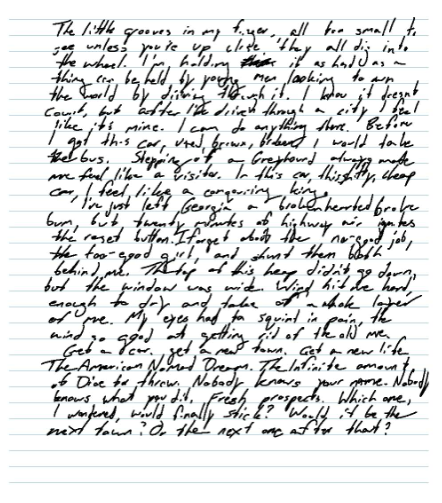 The little grooves in my finger, all too small to
see unless you're up close, they all dig into
the wheel. I'm holding it as hard as a
thing can be held by young men looking to own
the world by driving through it. I know it doesnt
count, but after I've drived through a city I feel
like it's mine. I can do anything there. Before
I got this car, used, brown, I would take
the bus. Stepping of a Greyhound always made
me feel like a visitor. In this car, this shitty, cheap
car, I feel like a conquering king.
I've just left Georgia a brokenhearted broke
bum, but twenty minutes of highway air ignites
the reset button. I forget about the no-good job,
the too-good girl, and shunt them both
behind me. The top of this heap didn't go down,
but the window was wide. Wind hit me hard,
enough to dry and take off a whole layer
of me. My eyes had to squint in pain, the
wind so good at getting rid of the old me.
Get a car. get a new town. Get a new life
The American Nomad Dream. The Infinite amount
of Dice to throw. Nobody knows your name. Nobody
knows what you did. Fresh prospects. Which one,
I wondered, would finally stick? Would it be the
next town? Or the next one after that?